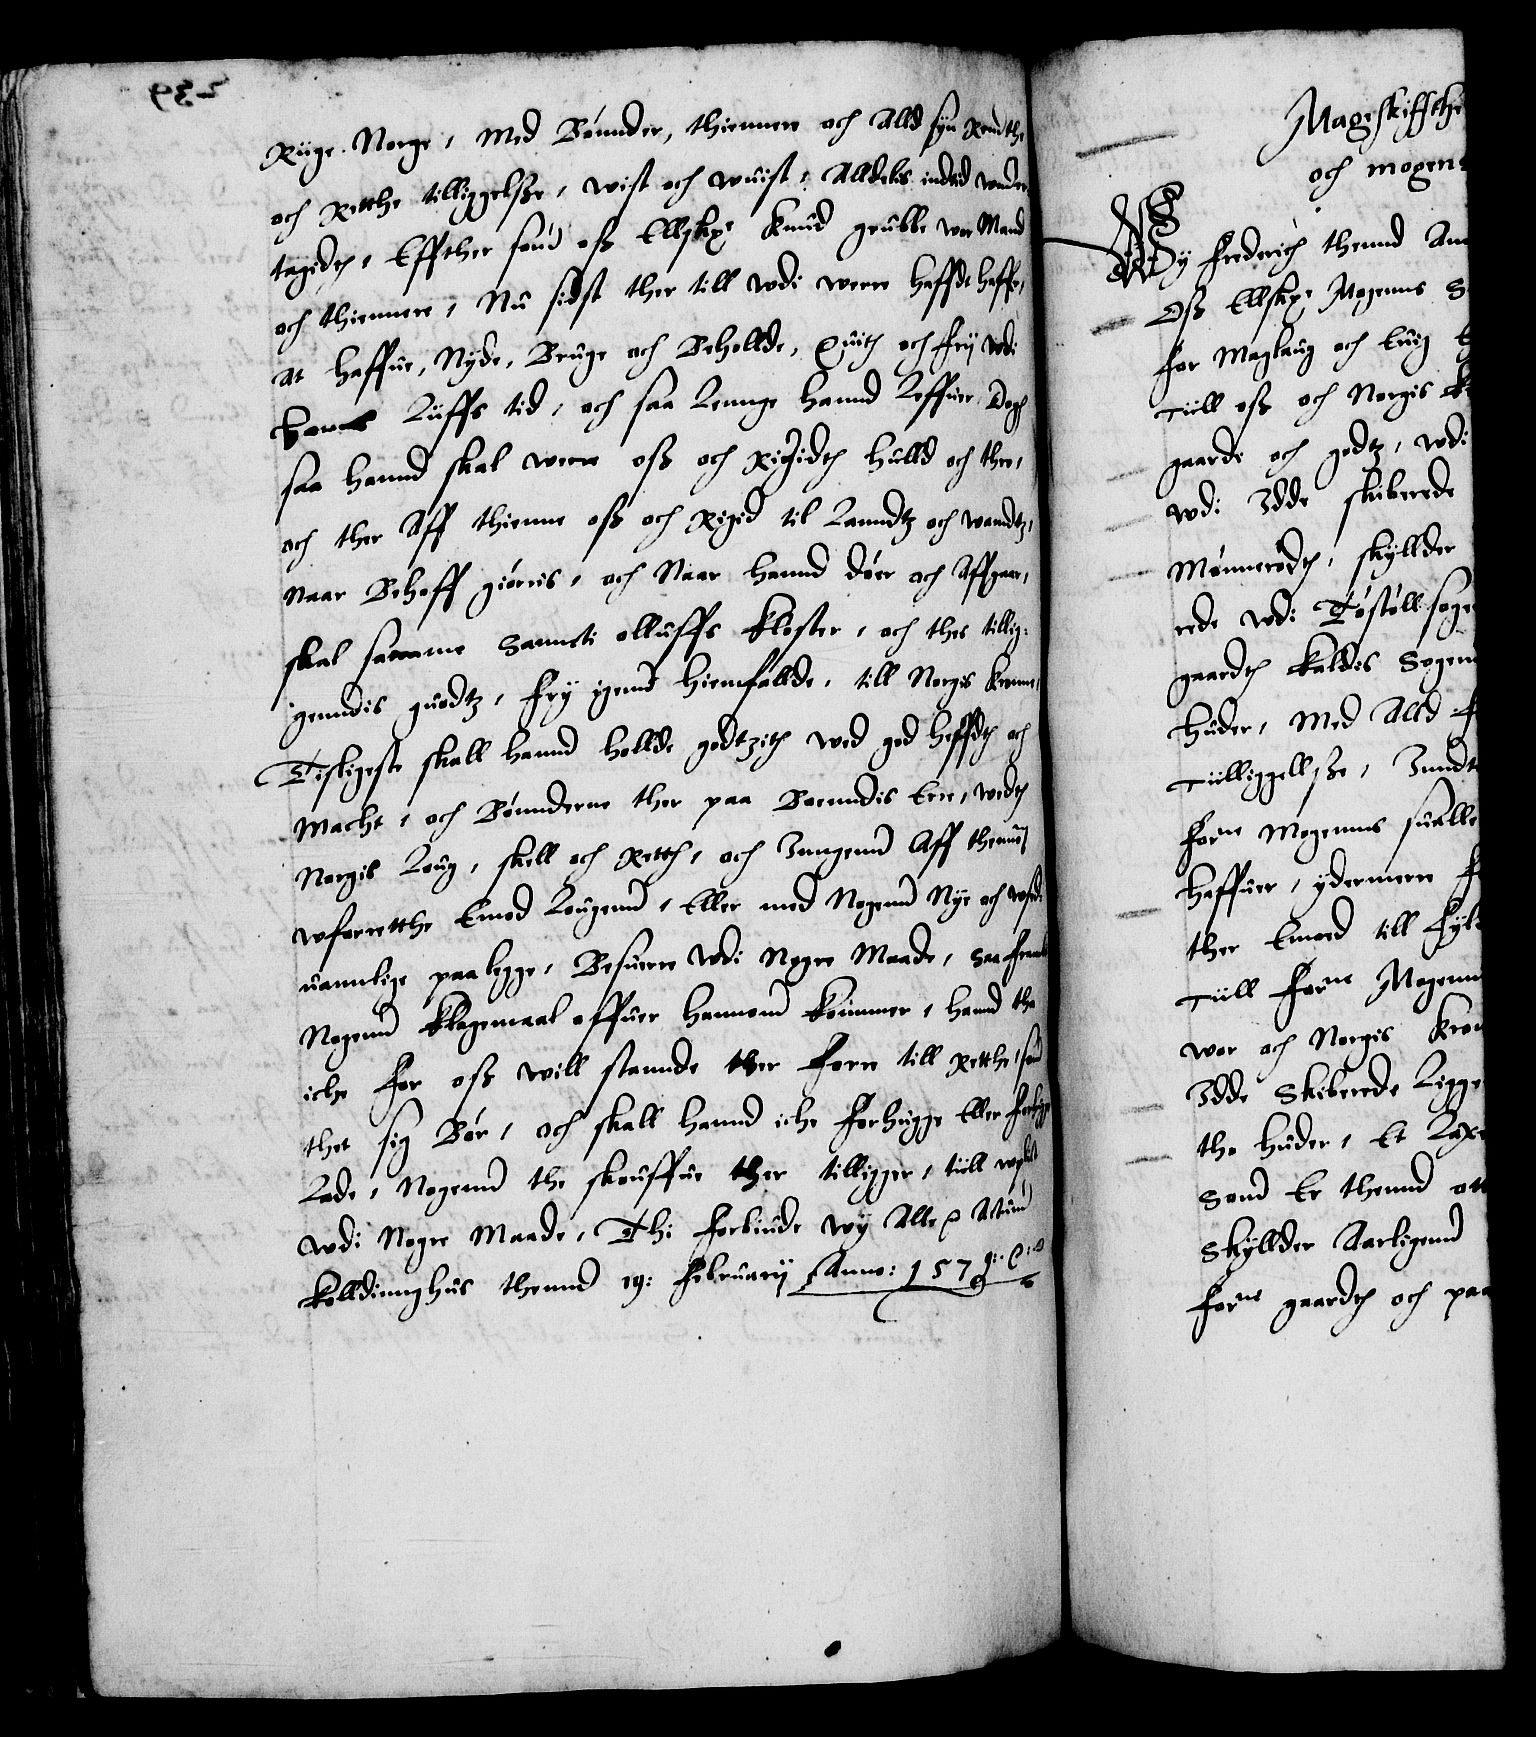 239
Riige Norge, Med Bønnder, thiennere och Alld syn Renthe
och Retthe tilliggelsße, wist och wuist, Alldelis indtid wnder
tagidth, Effther som oß Elskx: Knud grubbe wor Mand
och thiennere, Nu sidst ther till wdi were hafft haffr,
At haffue, Nyde, Bruge och Beholde, Quith och frij wdi
Hanns Liiffs tid, och saa Lennge hannd Leffuer, Dogh
saa hannd skal were oß och Rigidth huld och thro,
och ther Aff thienne oß och Rigid til Lanndtz och wandtz,
Naar Behoff giøris, och Naar hannd døer och Affgaar,
skal samme Sanncti olluffs Kloster, och thes tillig-
genndis guodtz, fry igenn hiemfallde, till Norgis Kronne,
Tisligeste skall hannd hollde godtzith wed god heffdth och
Macht, och Bønnderne ther paa Boenndis Ere, wedth
Norgis Loug, skell och Retth, och Inngenn Aff thennum
wforretthe Emod Lougenn, Eller med Nogenn Nye och wsed-
uannlige paalegge, Besuerre wdi Nogre Maade, Saa fremt
Nogenn Klagemaal offuer hannom Kommer, hannd tha
iche for oß will stannde ther forre till Retthe, som
thet sig Bør, och skall hannd iche forhugge Eller forhugge
Lade, Nogenn the skouffue ther tilligger, till wplicht
wdi Nogre Maade, Thi forbiude wij Alle etc. Actum
Kolldinnghus thennd 19: february Anno: 1579: etc.
Mageskiffthe
och mogens
Wy frederich thennd Ann
Oß Elskx: Mogenns S
for Maglaug och Euig
Till oß och Norgis Kr
gaarde och godtz, wdi
wdi Idde skiberede
Mønnerødth, skyllder
rede wdi Tøstøll soge
gaardth Kaldis Sogenn
huder, Med Alld
Tilliggellsße, Inndt
forne Mogenns sualle
haffuer, ydermere f
ther Emoed till fyl
Till forne Mogenns
wor och Norgis Kron
Idde Skiberede Ligge
tho huder, Et Lax
Sond Er thennd ott
Skyllder Aarligenn
forne gaardth och paa